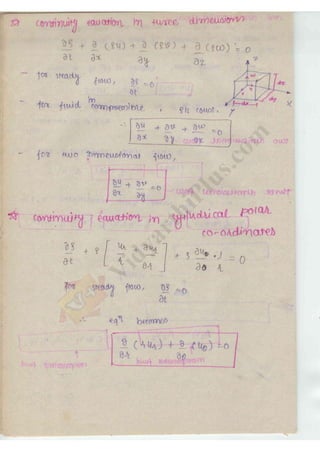 continuity equation in three dimensions
∂ρ/∂t + ∂/∂x (ρu) + ∂/∂y (ρv) + ∂/∂z (ρw) = 0
- for steady flow, ∂ρ/∂t = 0
- for fluid incompressible, ρ is const.
∴ ∂u/∂x + ∂v/∂y + ∂w/∂z = 0
- for two dimensional flow,
∂u/∂x + ∂v/∂y = 0
continuity equation in cylindrical polar
co-ordinates
∂ρ/∂t + ρ [ ur/r + ∂ur/∂r ] + ρ ∂uθ/∂θ · 1/r = 0
for steady flow, ∂ρ/∂t = 0
∴ eqn becomes
∂/∂r (r ur) + ∂/∂θ (uθ) = 0